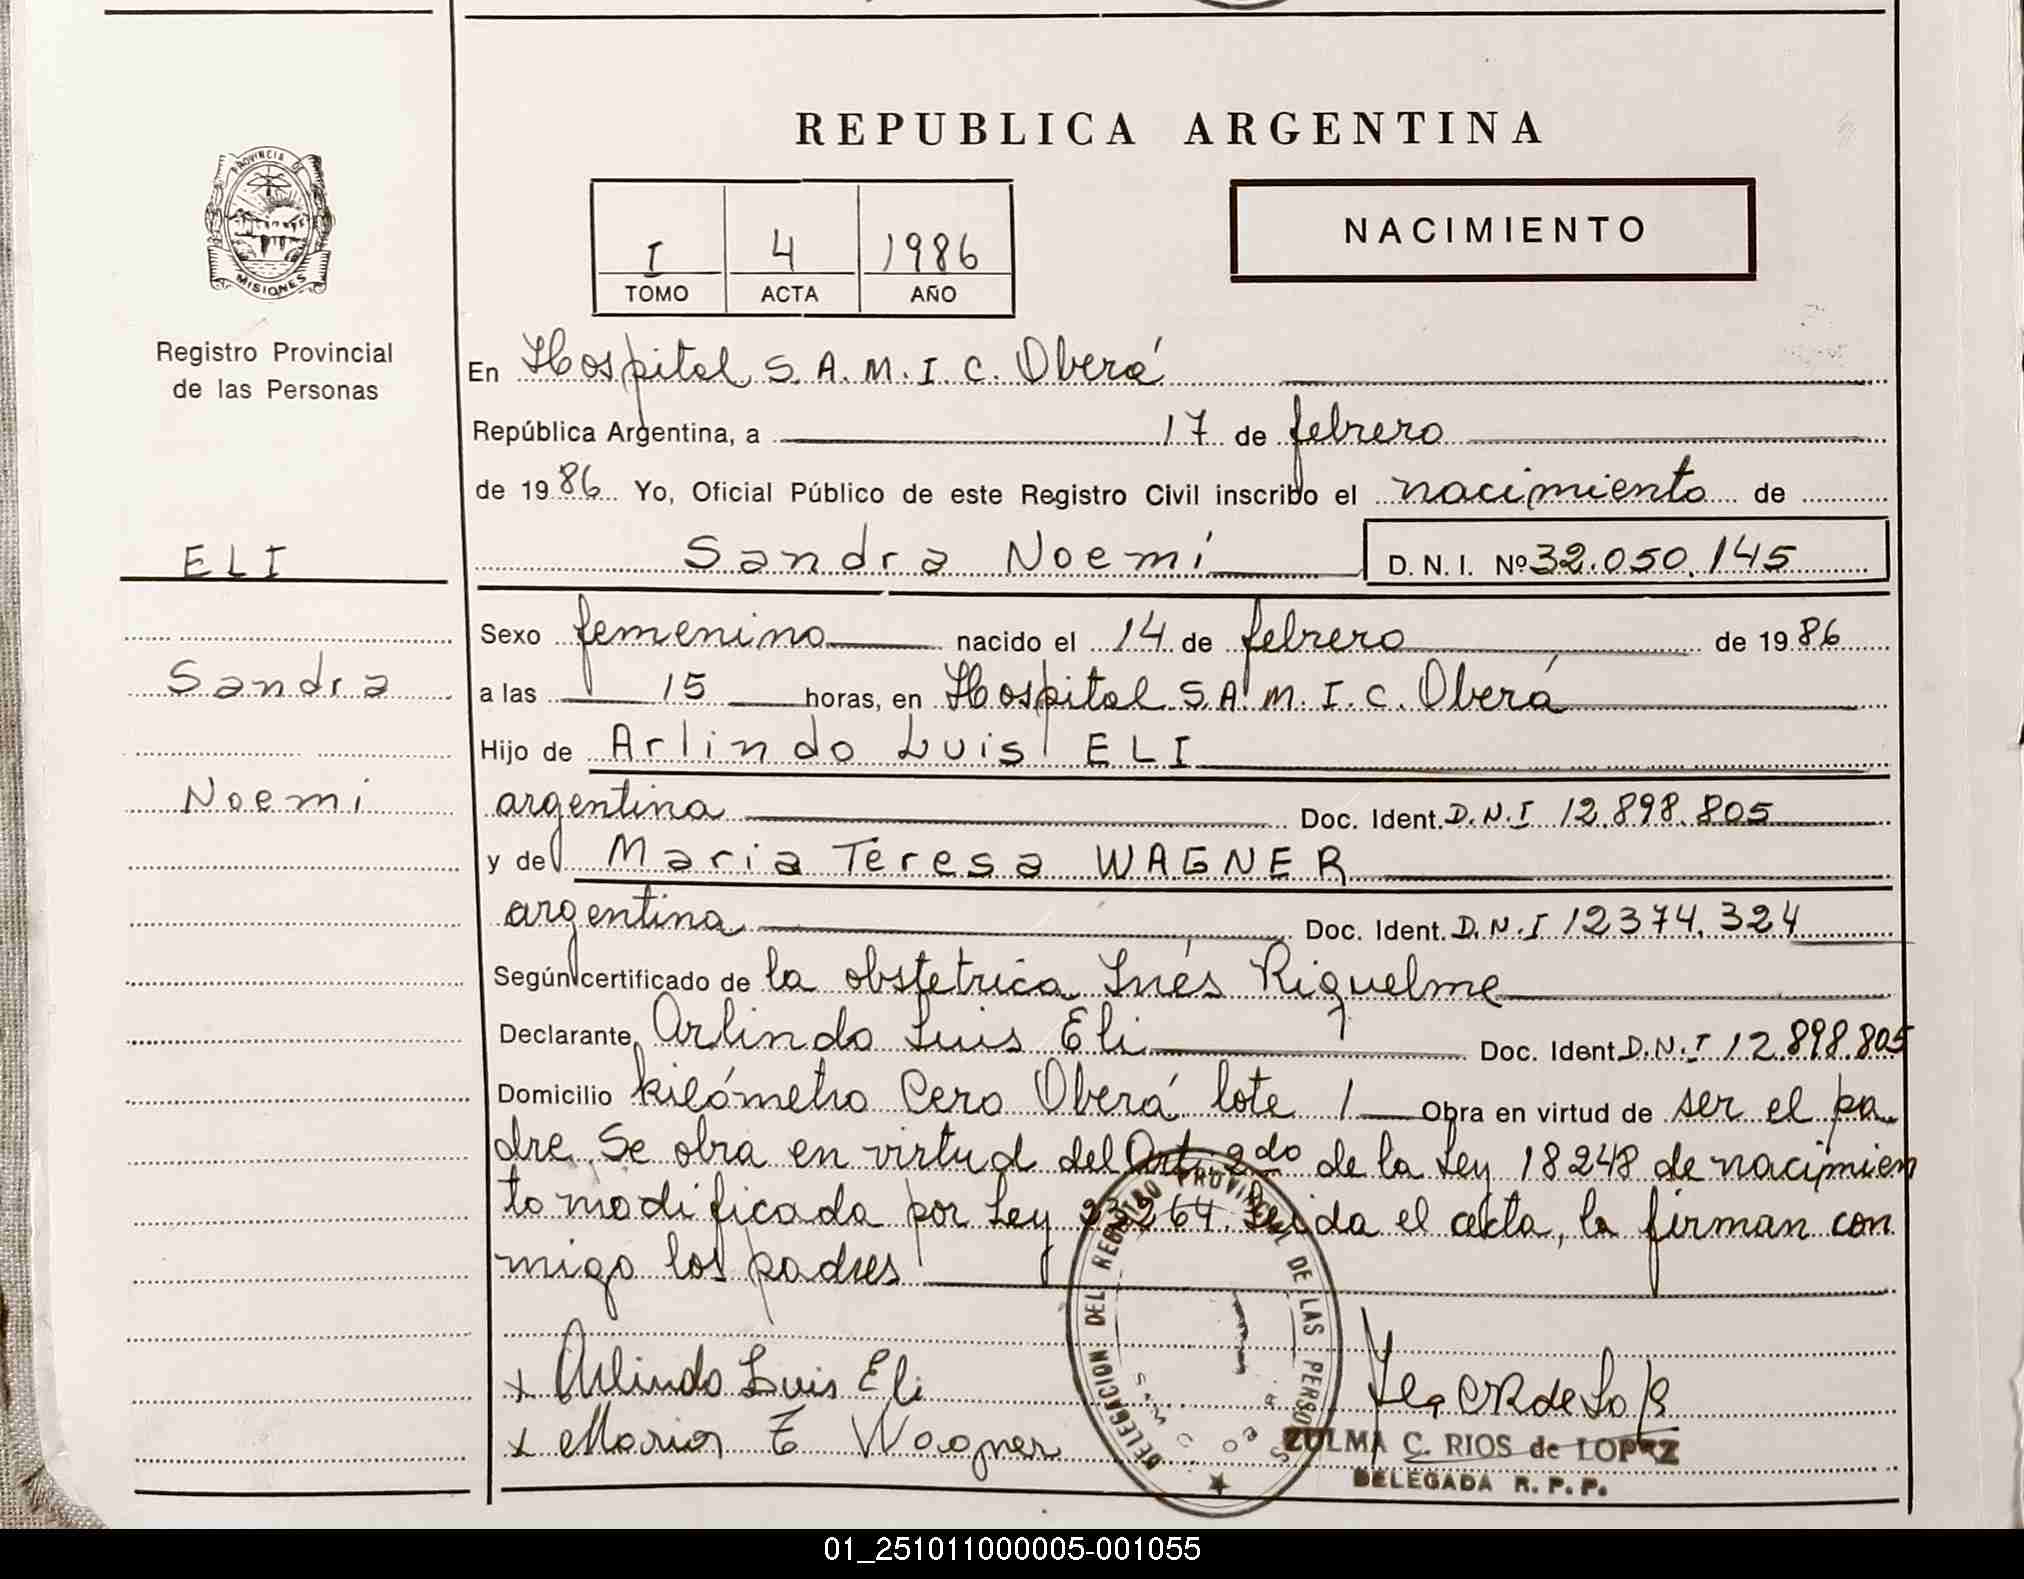 REPUBLICA ARGENTINA
PROVINCIA DE
MISIONES
Registro Provincial
de las Personas
I 4 1986
TOMO ACTA AÑO
NACIMIENTO
En Hospital S.A.M.I.C. Oberá
República Argentina, a 17 de febrero
de 1986 Yo, Oficial Público de este Registro Civil inscribo el nacimiento de
Sandra Noemí D.N.I. Nº 32.050.145
ELI
Sandra
Noemi
Sexo femenino nacido el 14 de febrero de 1986
a las 15 horas, en Hospital S.A.M.I.C. Oberá
Hijo de Arlindo Luis ELI
argentina Doc. Ident. D.N.I 12.898.805
y de Maria Teresa WAGNER
argentina Doc. Ident. D.N.I 12374.324
Según certificado de la obstetrica Inés Riquelme
Declarante Arlindo Luis Eli Doc. Ident D.N.I 12.898.805
Domicilio kilómetro Cero Oberá lote 1 Obra en virtud de ser el pa
dre. Se obra en virtud del Art. 2do de la Ley 18248 de nacimien
to modificada por Ley 23264. Leida el acta, la firman con
migo los padres
x Arlindo Luis Eli
x Maria T Wagner
DELEGACION DEL REGISTRO PROVINCIAL DE LAS PERSO
ZULMA C. RIOS de LOPEZ
DELEGADA R.P.P.
01_251011000005-001055